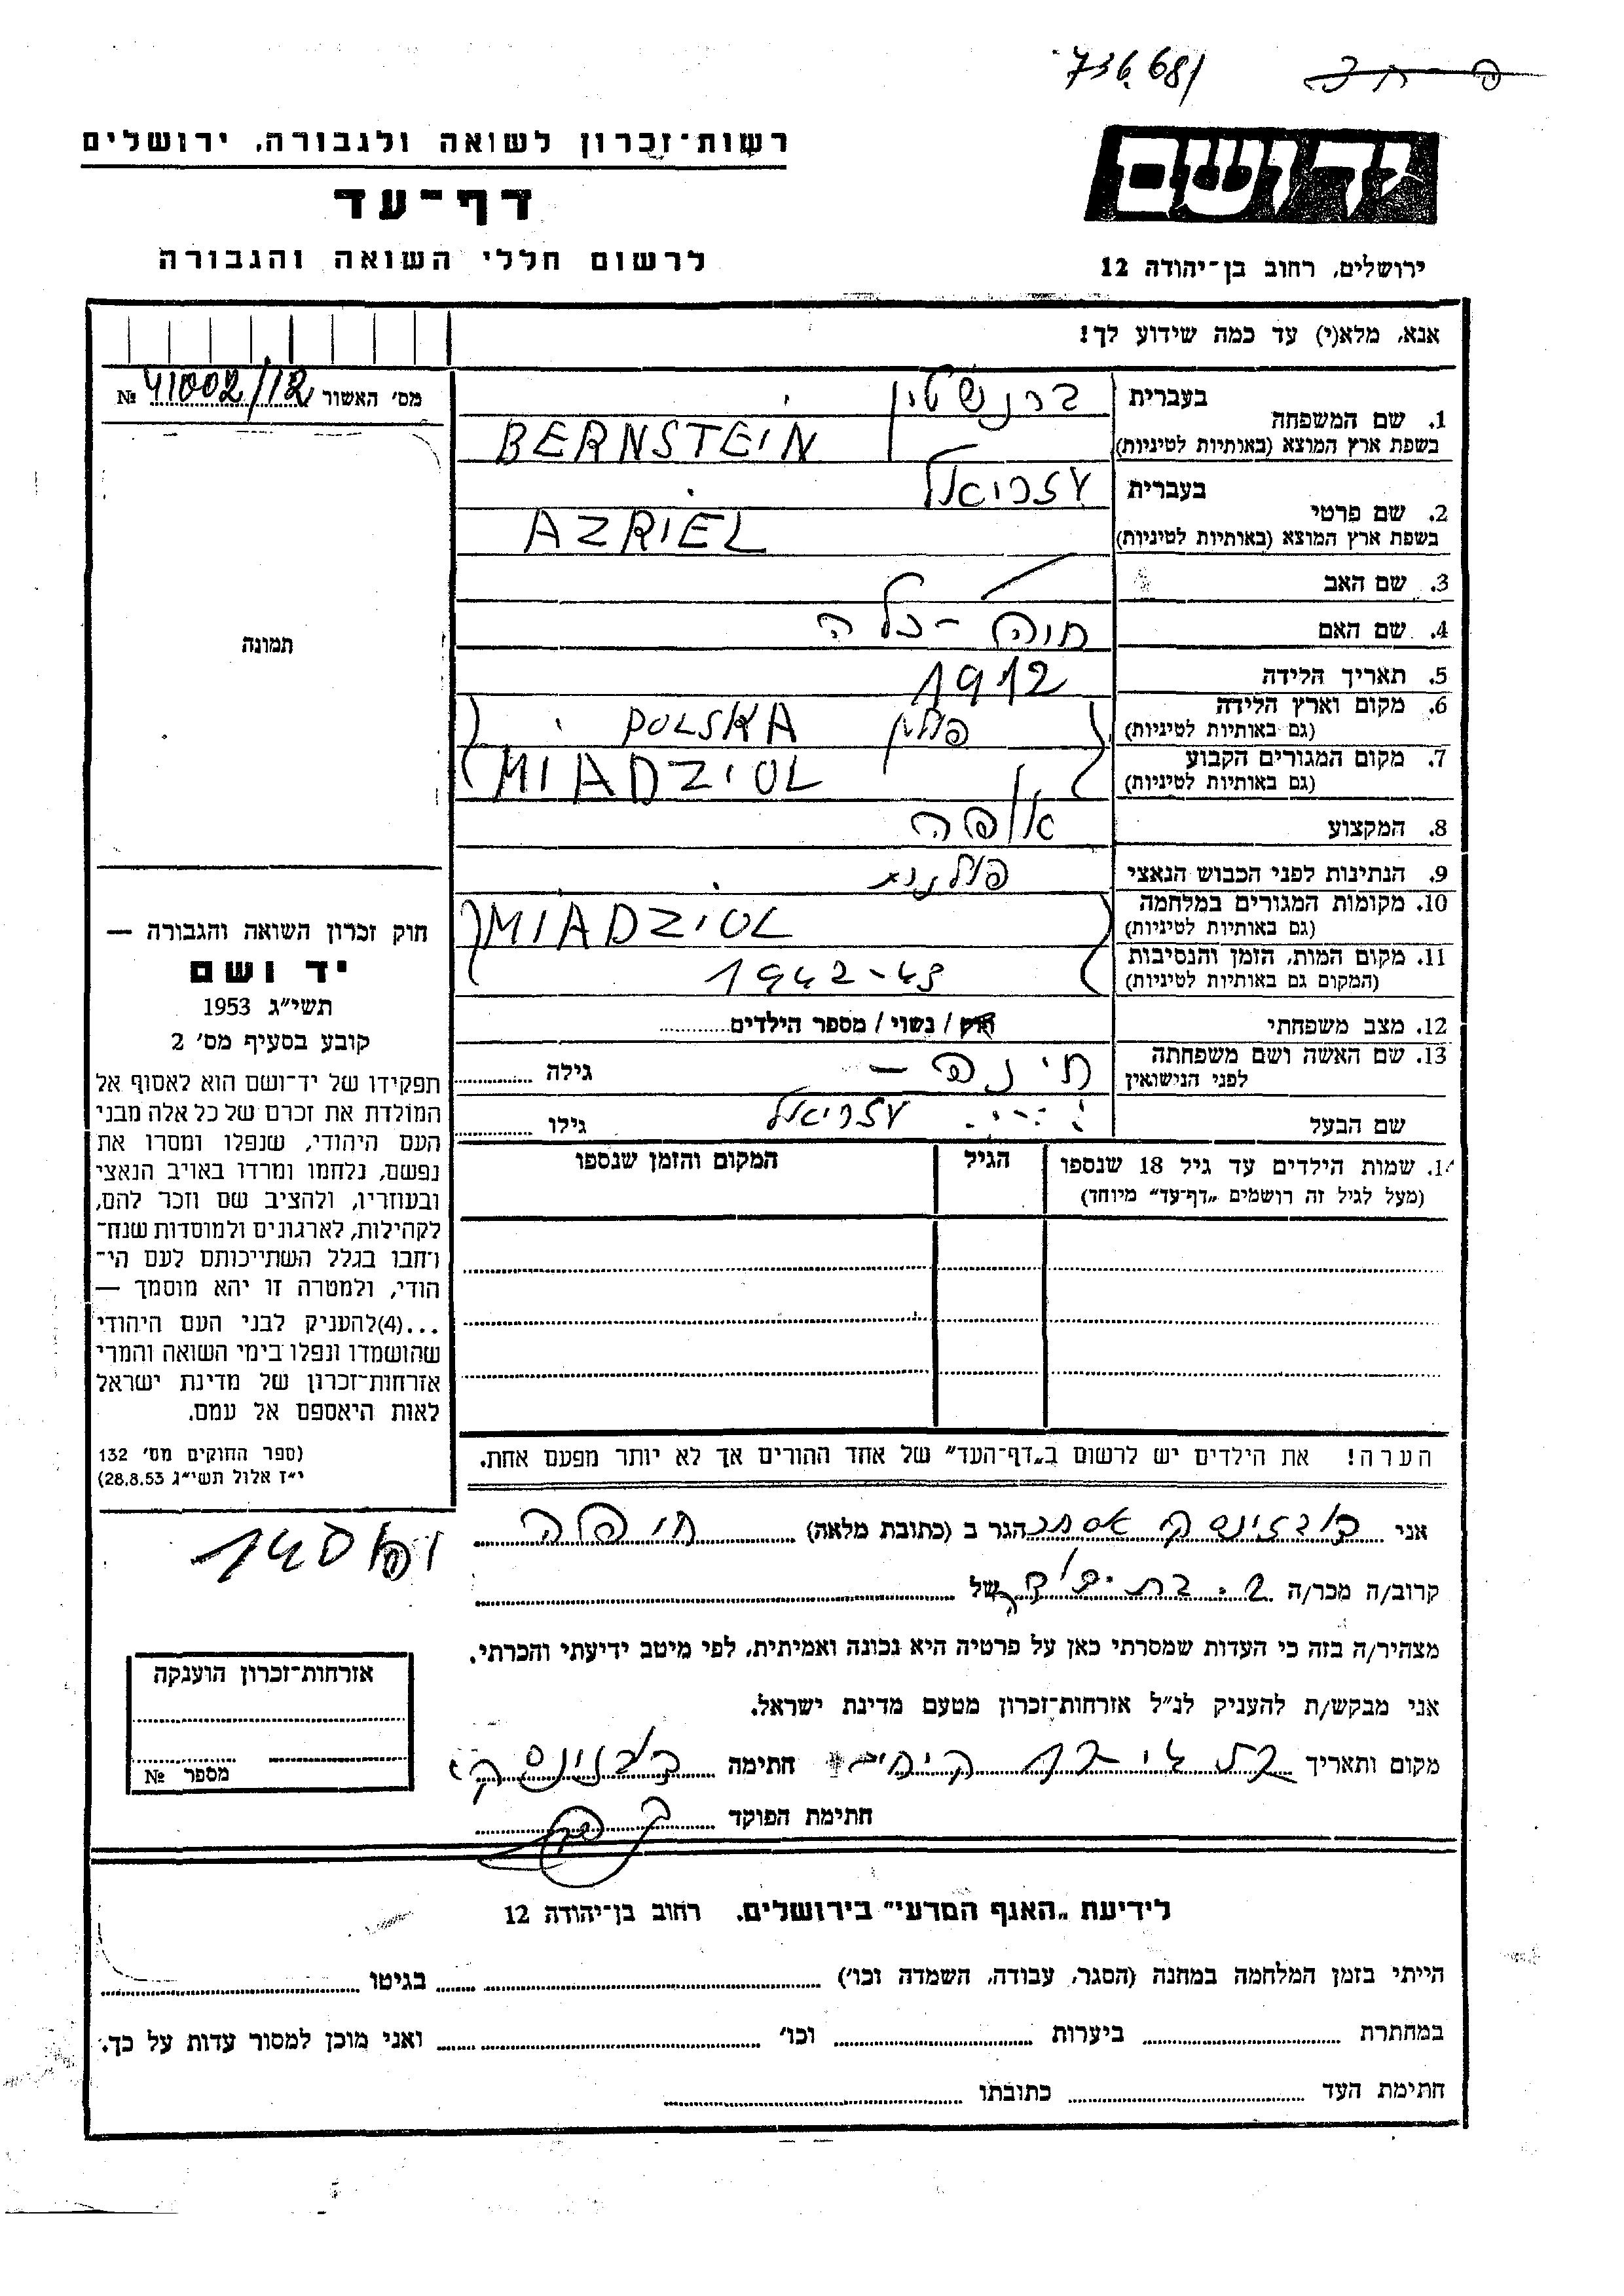 736.681
רשות־זכרון לשואה ולגבורה, ירושלים
דף־עד
לרשום חללי השואה והגבורה
יד ושם
ירושלים, רחוב בן־יהודה 12
אנא, מלא(י) עד כמה שידוע לך!
מס' האשור 41002/12 №
תמונה
1. שם המשפחה בעברית ברנשטיין
בשפת ארץ המוצא (באותיות לטיניות) BERNSTEIN
2. שם פרטי בעברית עזריאל
בשפת ארץ המוצא (באותיות לטיניות) AZRIEL
3. שם האב
4. שם האם חוה - כלה
5. תאריך הלידה 1912
6. מקום וארץ הלידה (גם באותיות לטיניות) פולין POLSKA
7. מקום המגורים הקבוע (גם באותיות לטיניות) MIADZIOL
8. המקצוע אופה
9. הנתינות לפני הכבוש הנאצי פולנית
10. מקומות המגורים במלחמה (גם באותיות לטיניות) MIADZIOL
11. מקום המות, הזמן והנסיבות (המקום גם באותיות לטיניות) 1942-43
12. מצב משפחתי רווק / נשוי / מספר הילדים
13. שם האשה ושם משפחתה לפני הנישואין גילה
שם הבעל עזריאל גילו
14. שמות הילדים עד גיל 18 שנספו הגיל המקום והזמן שנספו
(מעל לגיל זה רושמים "דף־עד" מיוחד)
הערה! את הילדים יש לרשום ב"דף־העד" של אחד ההורים אך לא יותר מפעם אחת.
חוק זכרון השואה והגבורה —
יד ושם
תשי"ג 1953
קובע בסעיף מס' 2
תפקידו של יד־ושם הוא לאסוף אל
המולדת את זכרם של כל אלה מבני
העם היהודי, שנפלו ומסרו את
נפשם, נלחמו ומרדו באויב הנאצי
ובעוזריו, ולהציב שם וזכר להם,
לקהילות, לארגונים ולמוסדות שנח־
רחבו בגלל השתייכותם לעם הי־
הודי, ולמטרה זו יהא מוסמך —
...(4)להעניק לבני העם היהודי
שהושמדו ונפלו בימי השואה והמרי
אזרחות־זכרון של מדינת ישראל
לאות היאספם אל עמם.
(ספר החוקים מס' 132
י"ז אלול תשי"ג 28.8.53)
אני אסתר הגר ב (כתובת מלאה) חיפה
קרוב/ה מכר/ה של
מצהיר/ה בזה כי העדות שמסרתי כאן על פרטיה היא נכונה ואמיתית, לפי מיטב ידיעתי והכרתי.
אני מבקש/ת להעניק לנ"ל אזרחות־זכרון מטעם מדינת ישראל.
מקום ותאריך חתימה
חתימת הפוקד
אזרחות־זכרון הוענקה
מספר №
לידיעת "האגף המדעי" בירושלים, רחוב בן־יהודה 12
הייתי בזמן המלחמה במחנה (הסגר, עבודה, השמדה וכו') בגיטו
במחתרת ביערות וכו' ואני מוכן למסור עדות על כך.
חתימת העד כתובתו